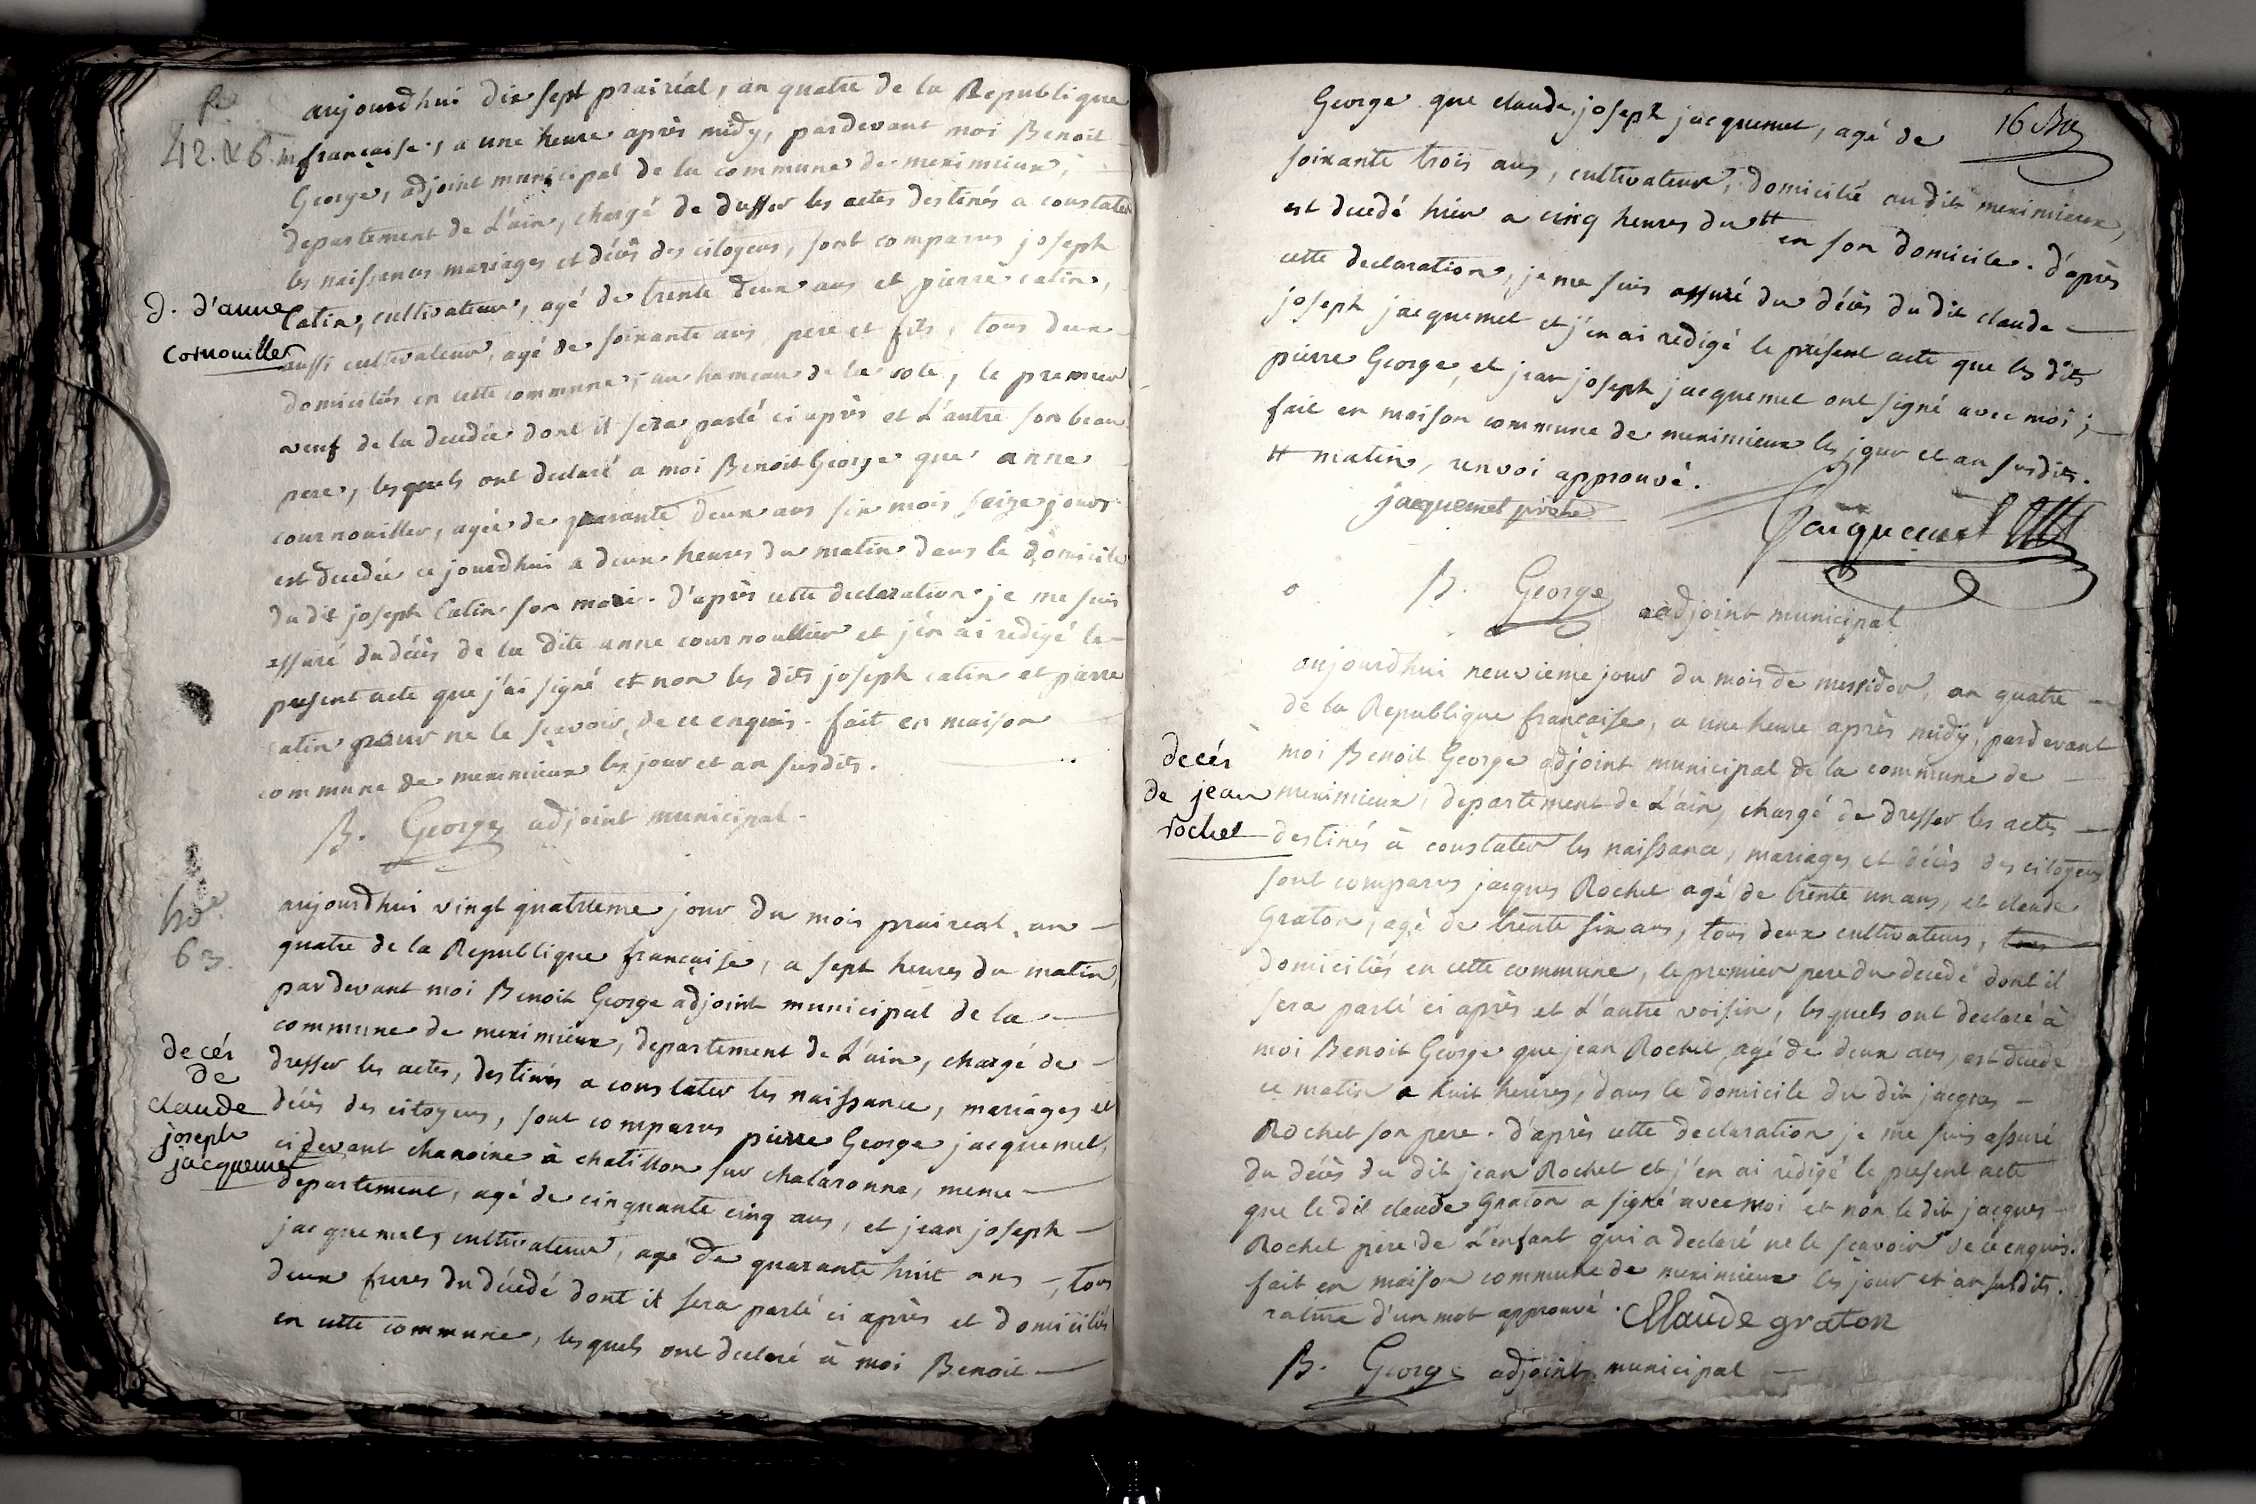 aujourdhui dix sept prairéal, an quatre de la Republique
francaise, a une heure après midy, pardevant moi Benoit
George, adjoint municipal de la commune de meximieux,
departement de L'ain, chargé de dresser les actes destinés a constater
les naissances mariages et décès des citoyens, sont comparus joseph
D. d'anne
Cornouiller
Catin, cultivateur, agé de trente deux ans et pierre catin,
aussi cultivateur, agé de soixante ans, pere et fils, tous deux
domiciliés en cette commune, au hameau de la cote, le premier
veuf de la decedée dont il sera parlé ci après et L'autre son beau
pere, lesquels ont declaré a moi Benoit George que anne
cournouiller, agée de quarante deux ans six mois seize jours
est decedée ce jourdhui a deux heures du matin dans le domicile
du dit joseph Catin son mari. D'après cette declaration je me suis
assuré du décès de la dite anne cournoullier et j'en ai redigé le
present acte que j'ai signé et non les dits joseph catin et pierre
catin pour ne le scavoir, de ce enquis. fait en maison
commune de meximieux les jour et an susdits.
B. George adjoint municipal.
63.
aujourdhui vingt quatrieme jour du mois prairéal, an
quatre de la Republique francaise, a sept heures du matin,
pardevant moi Benoit George adjoint municipal de la
commune de meximieux, departement de L'ain, chargé de
decés
de
claude
joseph
jacquemet
dresser les actes, destinés a constater les naissance, mariages et
décès des citoyens, sont comparus pierre George jacquemet,
ci devant chanoine à chatillon sur chalaronne, meme
departement, agé de cinquante cinq ans, et jean joseph
jacquemet, cultivateur, agé de quarante huit ans, tous
deux freres du décedé dont il sera parlé ci après et domiciliés
en cette commune, lesquels ont declaré à moi Benoit
16
George que claude joseph jacquemet, agé de
soixante trois ans, cultivateur, domicilié audit meximieux,
est decedé hier a cinq heures du # en son domicile. D'après
cette declaration, je me suis assuré du décès du dit claude
joseph jacquemet et j'en ai redigé le présent acte que les dits
pierre George, et jean joseph jacquemet ont signé avec moi;
fait en maison commune de meximieux les jour et an susdits.
# matin, renvoi approuvé.
jacquemet prêtre
Jacquemet
B. George adjoint municipal
aujourdhui neuvieme jour du mois de messidor, an quatre
de la Republique francaise, a une heure après midy, pardevant
moi Benoit George adjoint municipal de la commune de
decés
de jean
rochet
meximieux, departement de L'ain, chargé de dresser les actes
destinés à constater les naissance, mariages et décès des citoyens
sont comparus jacques Rochet agé de trente un ans, et claude
Graton, agé de trente six ans, tous deux cultivateurs, tous
domiciliés en cette commune, le premier pere du decedé dont il
sera parlé ci après et L'autre voisin, lesquels ont declaré à
moi Benoit George que jean Rochet, agé de deux ans, est decedé
ce matin a huit heures, dans le domicile du dit jacques
Rochet son pere. D'après cette declaration je me suis assuré
du décès du dit jean Rochet et j'en ai redigé le present acte
que le dit claude Graton a signé avec moi et non le dit jacques
Rochet pere de L'enfant qui a declaré ne le scavoir de ce enquis.
fait en maison commune de meximieux les jour et an susdits.
rature d'un mot approuvé. Claude graton
B. George adjoint municipal